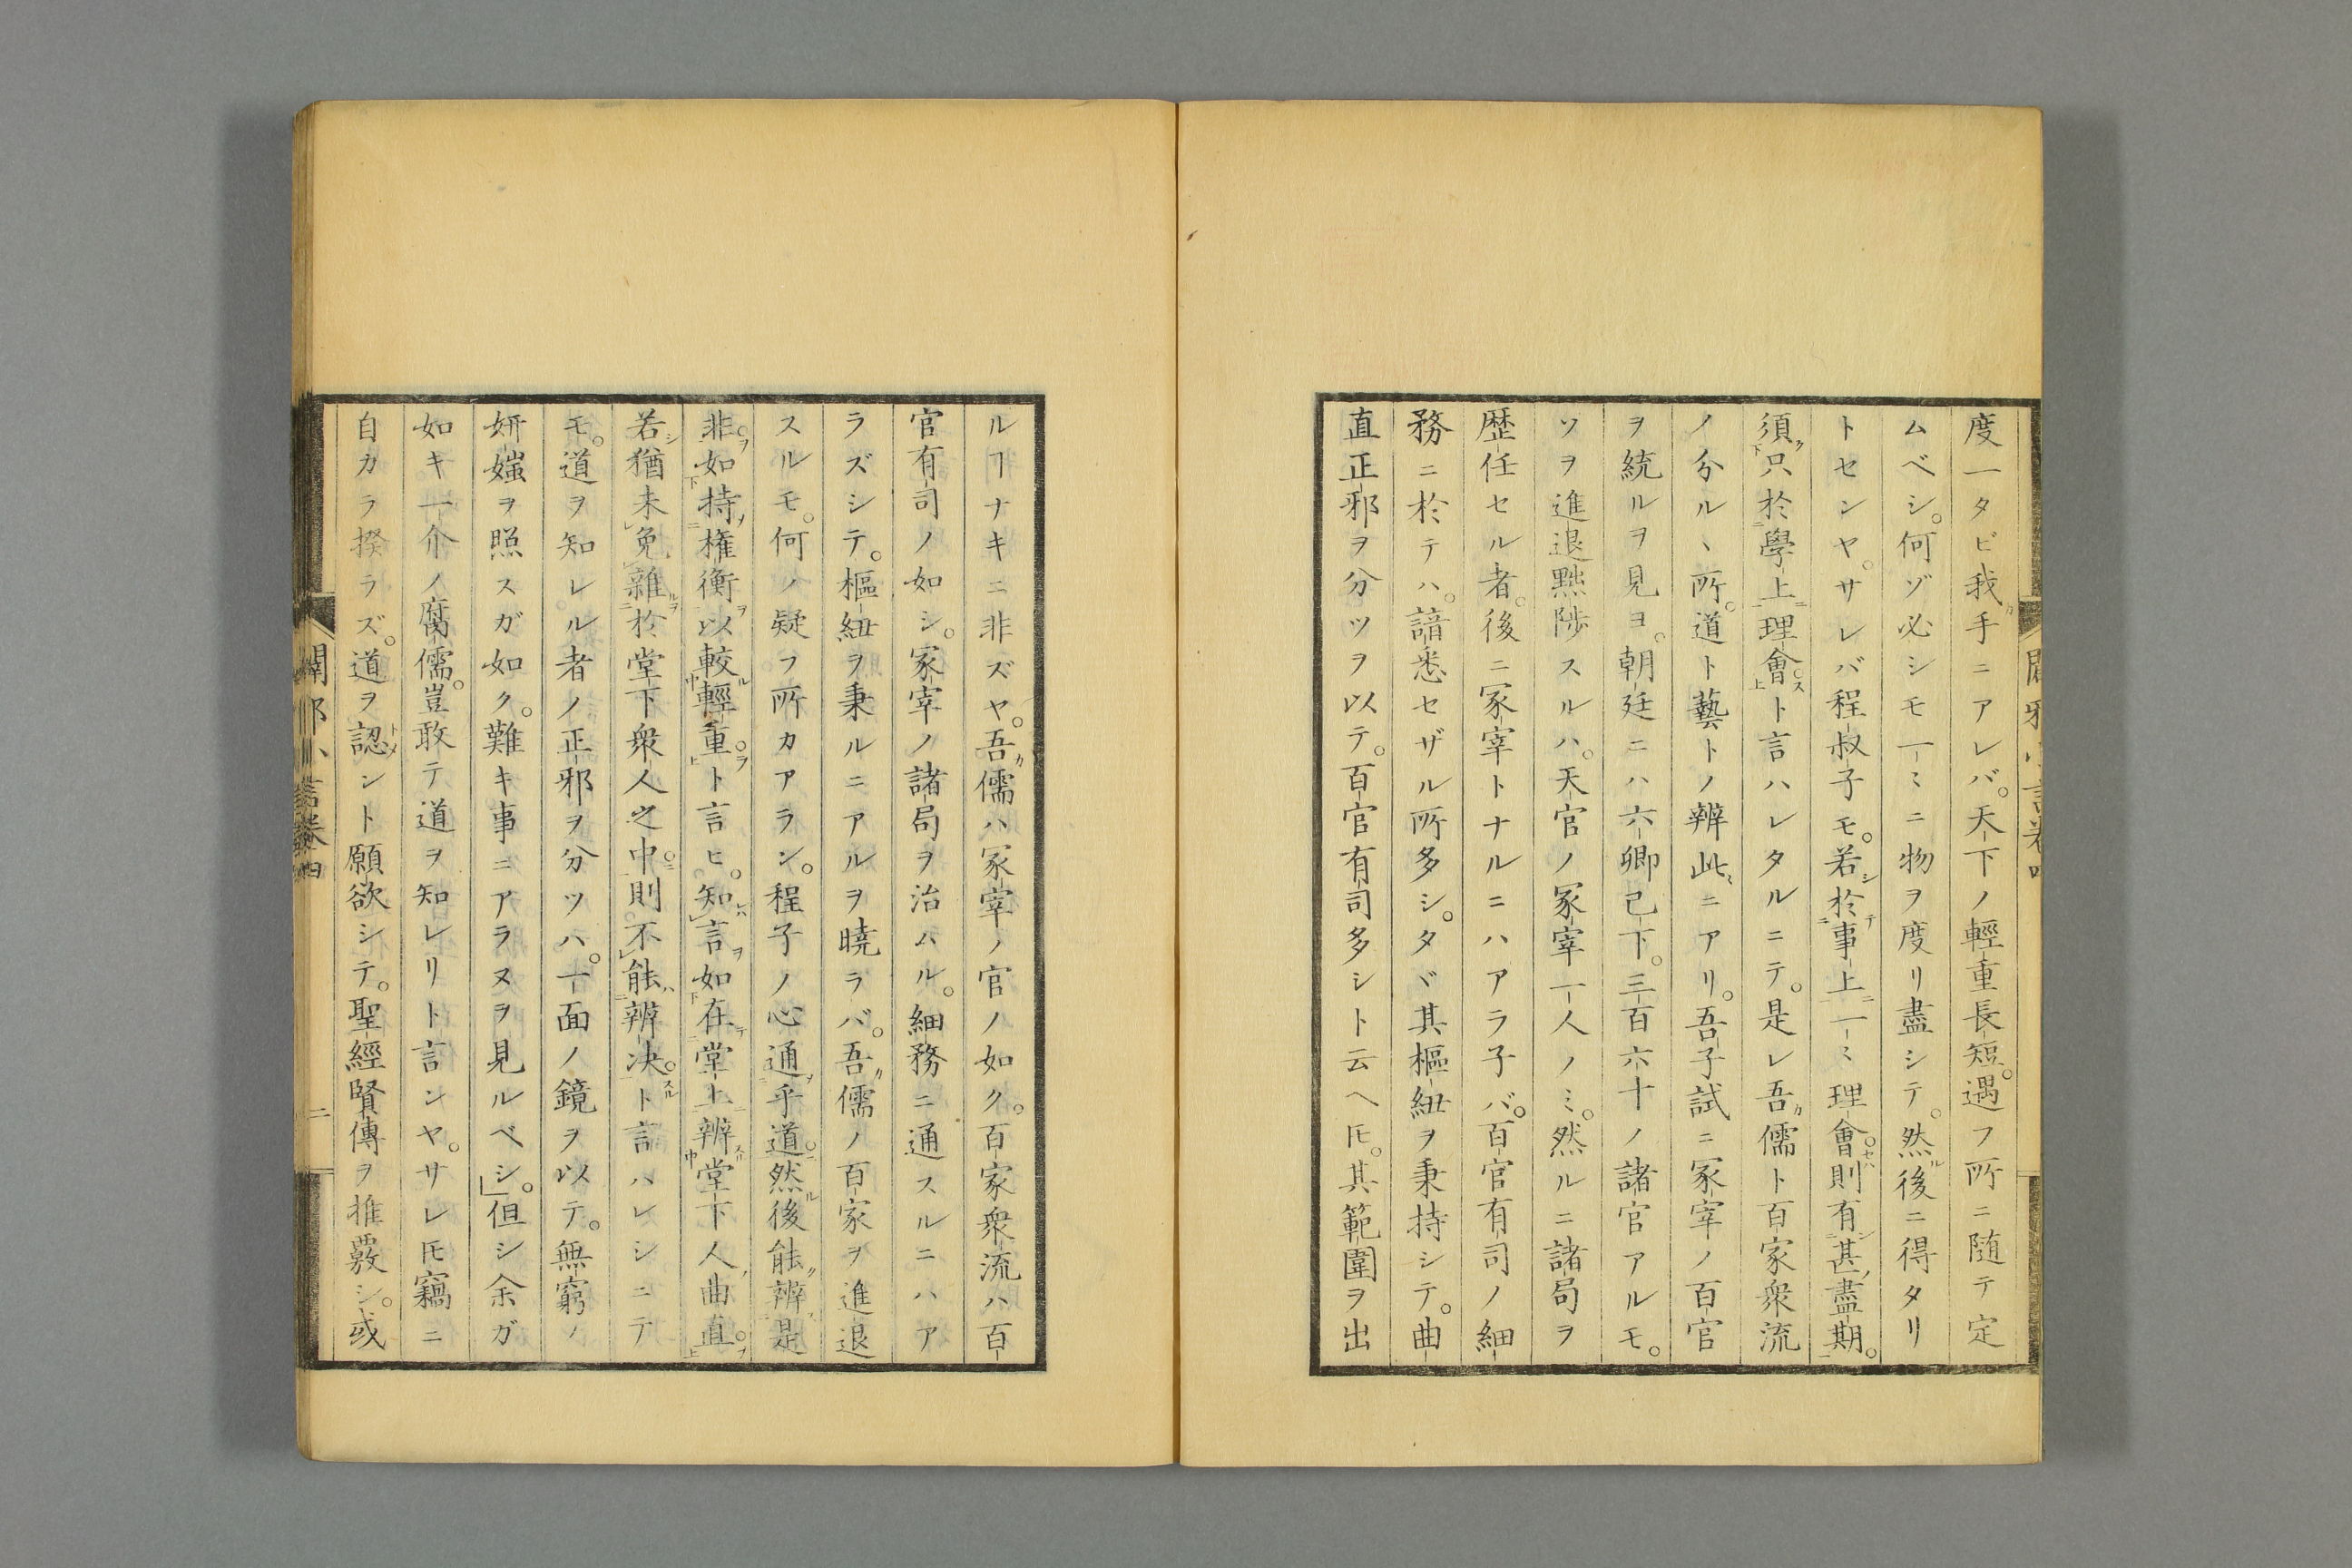 度一タビ我カ手ニアレバ。天下ノ輕重長短。遇フ所ニ隨テ定
ムベシ。何ゾ必シモ一〻ニ物ヲ度リ盡シテ。然ル後ニ得タリ
トセンヤ。サレバ程叔子モ。若シ於テ事上ニ一〻理會セハ則有ン甚ノ盡期。
須ク只於學上ニ理會スト言ハレタルニテ。是レ吾カ儒ト百家衆流
ノ分ルヽ所。道ト藝トノ辨此ニアリ。吾子試ニ冢宰ノ百官
ヲ統ルヲ見ヨ。朝廷ニハ六卿已下。三百六十ノ諸官アルモ。
ソヲ進退黜陟スルハ。天官ノ冢宰一人ノミ。然ルニ諸局ヲ
歴任セル者。後ニ冢宰トナルニハアラ子バ。百官有司ノ細
務ニ於テハ。諳悉セザル所多シ。タヾ其樞紐ヲ秉持シテ。曲
直正邪ヲ分ツヲ以テ。百官有司多シト云ヘ𪜈。其範圍ヲ出
ルヿナキニ非ズヤ。吾カ儒ハ冢宰ノ官ノ如ク。百家衆流ハ百
官有司ノ如シ。冢宰ノ諸局ヲ治ムル。細務ニ通スルニハア
ラズシテ。樞紐ヲ秉ルニアルヲ曉ラバ。吾カ儒ノ百家ヲ進退
スルモ。何ノ疑フ所カアラン。程子ノ心通乎道ニ然ル後能ク辨ス是
非ヲ如持ノ權衡ヲ以較ル輕重ヲト言ヒ。知レハ言ヲ如在テ堂上ニ辨スル堂下人ノ曲直ヲ
若シ猶未免雜ルヲ於堂下衆人之中ニ則不能ハ辨決スルト言ハレシニテ
モ。道ヲ知レル者ノ正邪ヲ分ツハ。一面ノ鏡ヲ以テ。無窮ノ
妍媸ヲ照スガ如ク。難キ事ニアラヌヲ見ルベシ。」但シ余ガ
如キ一介ノ腐儒。豈敢テ道ヲ知レリト言ンヤ。サレ𪜈竊ニ
自カラ揆ラズ。道ヲ認トメント願欲シテ。聖經賢傳ヲ推覈シ。或
闢邪小言卷四
二